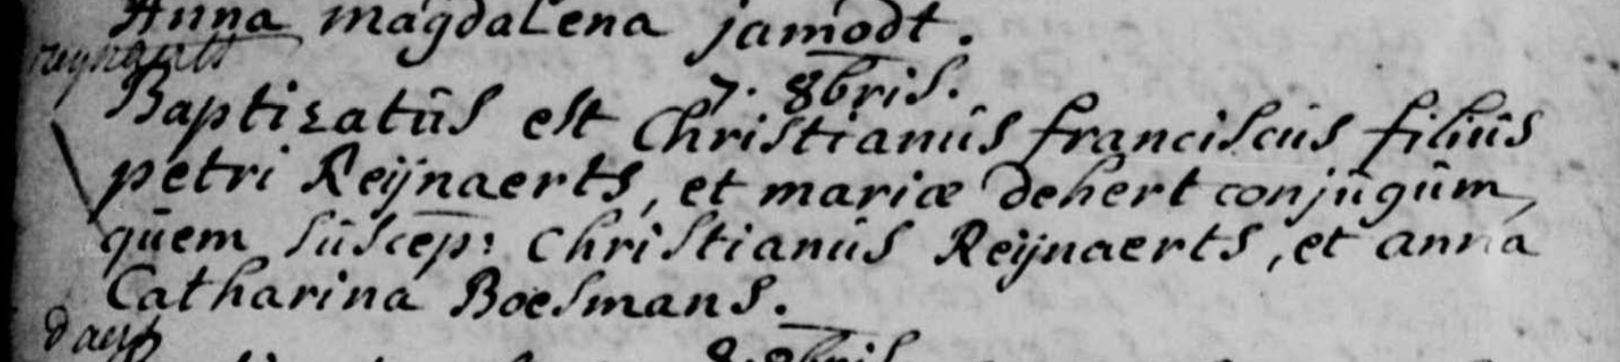 Anna magdalena jamodt.
7. 8bris.
Baptizatûs est Christianûs franciscûs filiûs
petri Reijnaerts, et mariæ dehert conjûgûm,
qûem sûscep: Christianûs Reijnaerts, et anna
Catharina Boesmans.
8bris